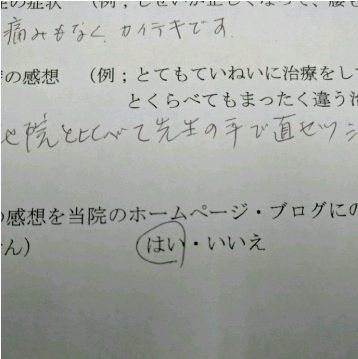 症の症状 （例；しせいが正しくなって、腰も
痛みもなく、カイテキです。
の感想 （例；とてもていねいに治療をして
とくらべてもまったく違う治
院とくらべて先生の手で直せツ
の感想を当院のホームページ・ブログにの
ん） はい・いいえ